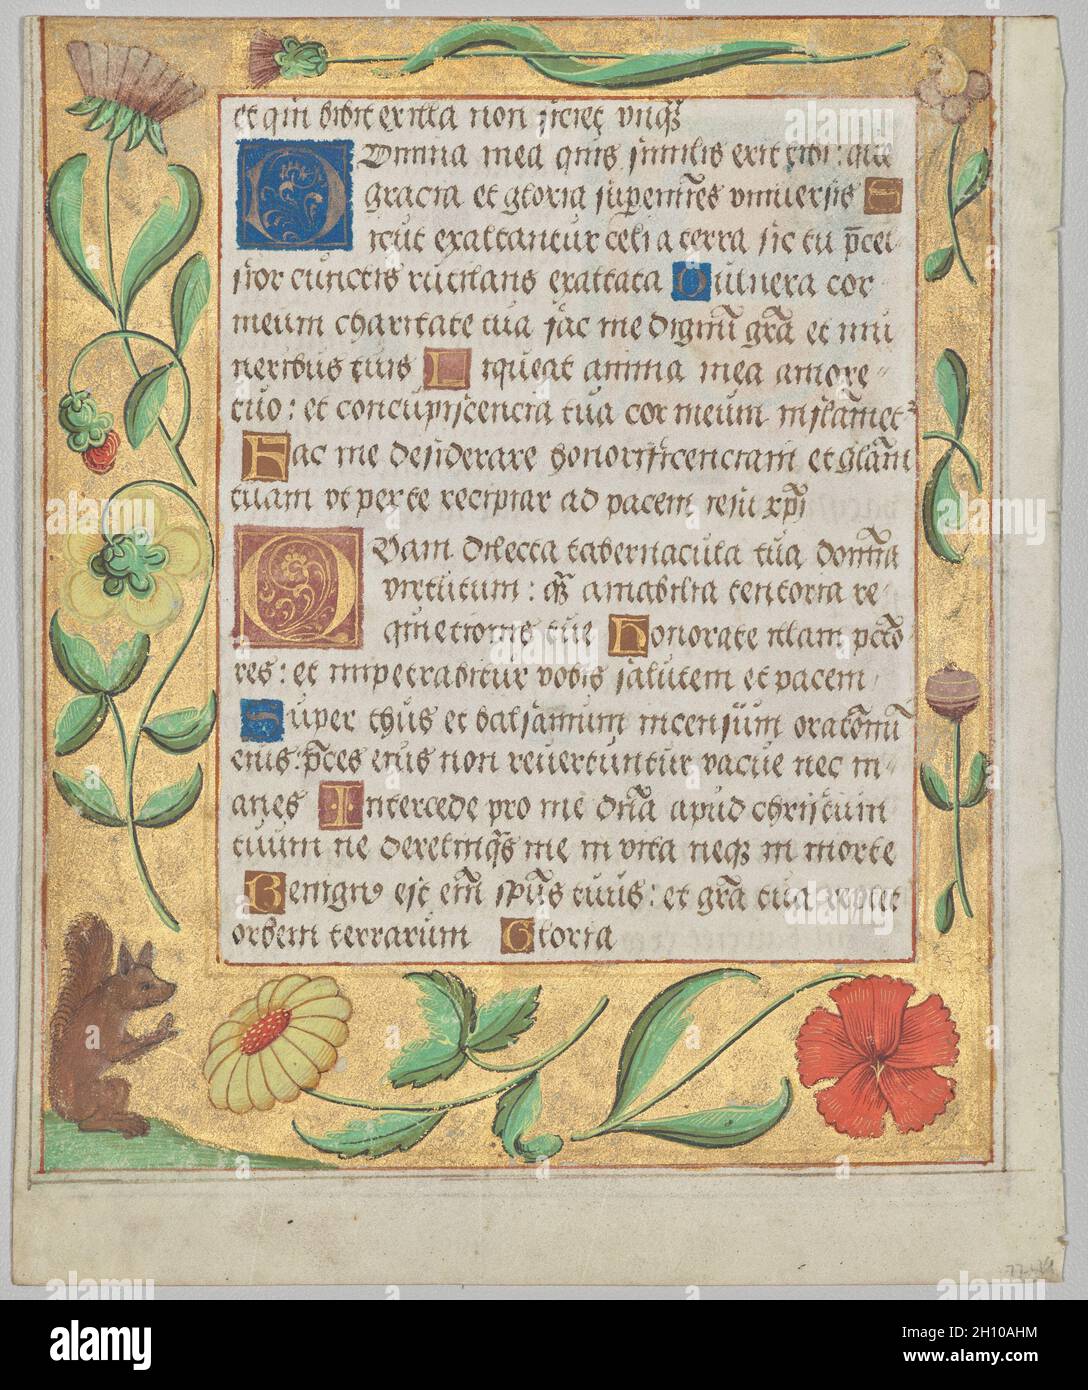 et qui bibit ex illa non siciet vnq̃
Omina mea quis similis erit tibi: que
gracia et gloria superem̃es vniuersis S
icut exaltantur celi a terra sic tu p̃cel
sior cunctis rutilans exaltata Vulnera cor
meum charitate tua fac me dignũ gr̃a et mu
neribus tuis Liqueat anima mea amore
tuo: et concupiscencia tua cor meum
Fac me desiderare honorificenciam et glam̃
tuam vt per te recipiar ad pacem iesu xp̃i
Quam dilecta tabernacula tua domĩa
virtutum: q̃ amabilia tentoria re
quietionis tue Honorate illam pctõ
res: et impetrabitur vobis salutem et pacem
Super thus et balsamum incensum oratõniũ
eius: p̃ces eius non reuertuntur vacue nec in
anes Intercede pro me dña apud christum
tuum ne derelinq̃s me in vita neq̃ in morte
Benignꝰ est em̃ spũs tuus: et gr̃a tua replet
orbem terrarum Gloria
alamy
Image ID: 2H10AHM
www.alamy.com